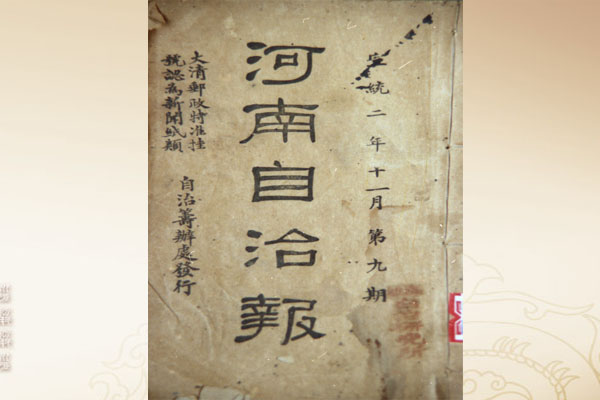 宣統二年十一月第九期
河南自治報
大清郵政特准挂
號認為新聞紙類
自治籌辦處發行